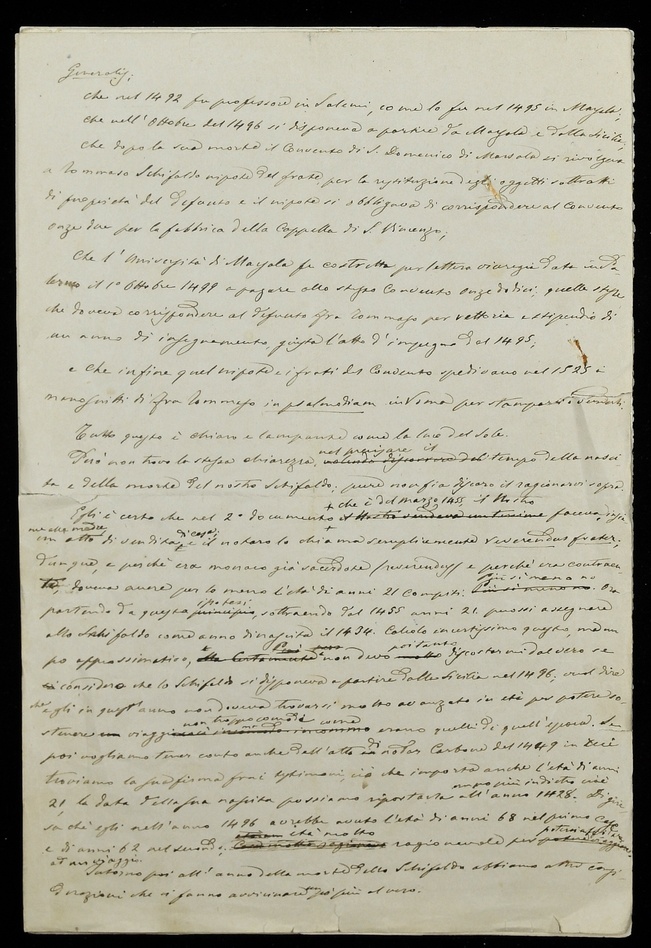 Generali;
che nel 1492 fu professore in Salemi, come lo fu nel 1495 in Marsala;
che nell'Ottobre del 1496 si disponeva a partire da Marsala e dalla Sicilia;
che dopo la sua morte il Convento di S. Domenico di Marsala si rivolgeva
a Tommaso Schifaldo nipote del frate, per la restituzione degli oggetti sottratti
di proprietà del defunto e il nipote si obbligava di corrispondere al Convento
onze due per la fabbrica della Cappella di S. Vincenzo;
Che l'Università di Marsala fu costretta per lettera viceregia data in Pa-
lermo il 1° Ottobre 1499 a pagare allo stesso Convento onze dodici, quelle stesse
che doveva corrispondere al defunto Fra Tommaso per vettovia e stipendio di
un anno di insegnamento, giusta l'atto d'impegno del 1495;
e che infine quel nipote e i frati del Convento spedivano nel 1525 i
manoscritti di Fra Tommaso in psalmodiam in Roma per stamparsi
Tutto questo è chiaro e lampante come la luce del Sole.
nel precisare il
Però non trovo la stessa chiarezza, tempo della nasci-
ta e della morte del nostro Schifaldo; pure non fia discaro il ragionarvi sopra.
+ che è del marzo 1455, il Nostro
Egli è certo che nel 2° documento faceva
di casa,
un atto di vendita, e il notaro lo chiama semplicemente reverendus frater;
Dunque, e perchè era monaco già sacerdote (reverendus) e perchè era contraen-
te, doveva avere per lo meno l'età di anni 21 compiti. Più si meno no. Ora
ipotesi
partendo da questa principio, sottraendo dal 1455 anni 21 puossi assegnare
allo Schifaldo come anno di nascita il 1434. Calcolo incertissimo questo, ma un
Pur pertanto
po' approssimativo, non devo molto discostarmi dal vero se
si considera che lo Schifaldo si disponeva a partire dalla Sicilia nel 1496; vuol dire
che egli in quest'anno non doveva trovarsi molto avanzato in età per potere so-
non troppo comodi come
stenere viaggi erano quelli di quell'epoca. Se
poi vogliamo tener conto anche dell'atto di notar Carbone del 1449 in
troviamo la sua firma fra i testimoni, ciò che importa anche l'età di anni
21, la data della sua nascita possiamo riportarla all'anno 1428. Di gui-
sa che egli nell'anno 1496 avrebbe avuto l'età di anni 68 nel primo caso
età molto
e di anni 62 nel secondo, ragionevole per
ad un viaggio.
Intorno poi all'anno della morte dello Schifaldo abbiamo altre consi-
derazioni che ci fanno avvicinare più al vero.